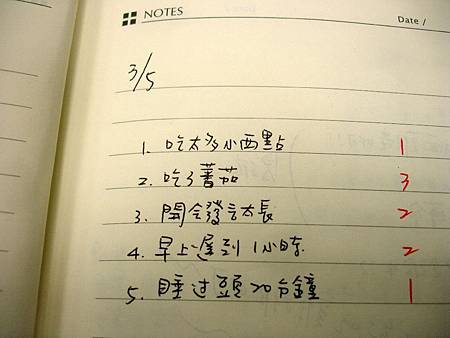 NOTES Date /
3/5
1. 吃太多小西點 1
2. 吃了蕃茄 3
3. 開会發言太長 2
4. 早上遲到1小時 2
5. 睡过頭20分鐘 1